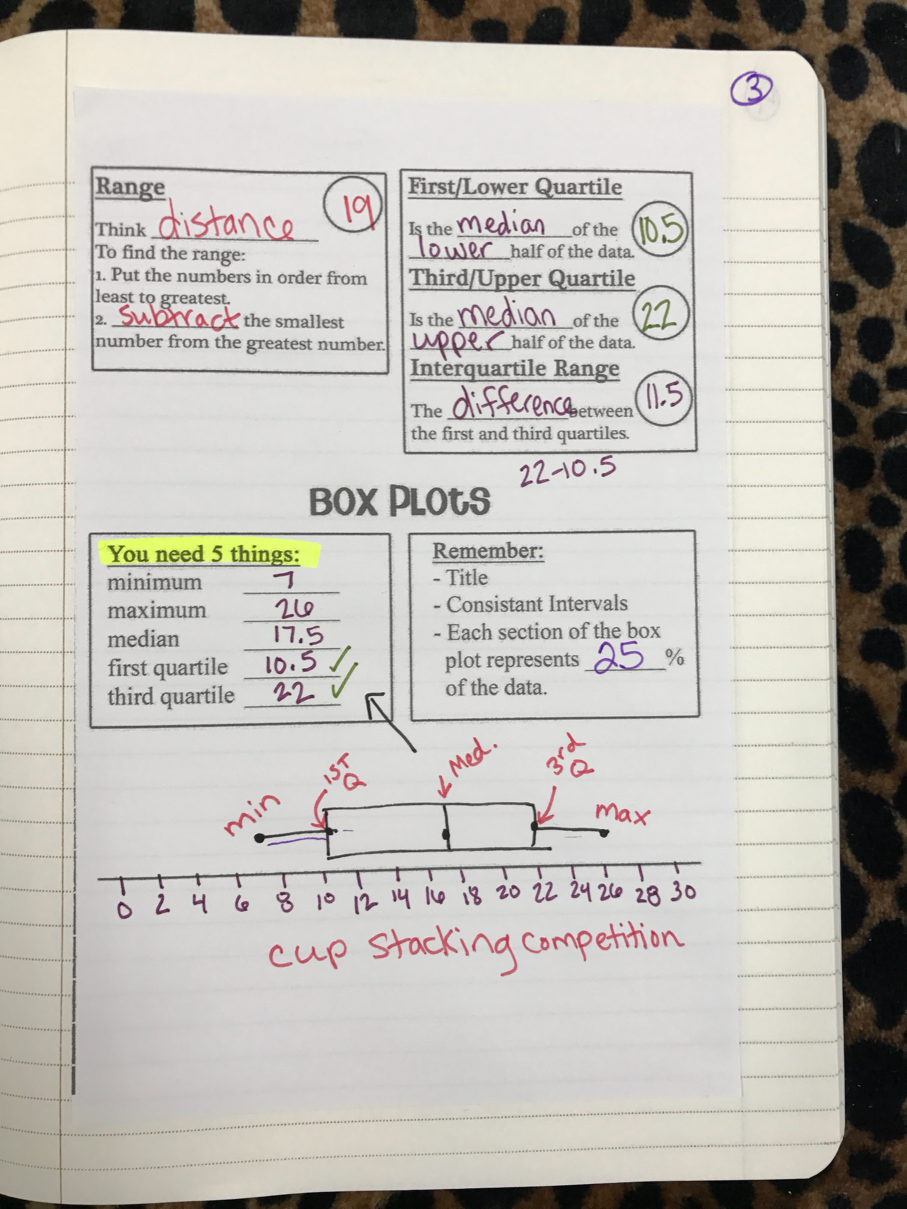 3
Range
19
Think distance
To find the range:
1. Put the numbers in order from
least to greatest.
2. subtract the smallest
number from the greatest number.
First/Lower Quartile
Is the median of the
lower half of the data.
10.5
Third/Upper Quartile
Is the median of the
upper half of the data.
22
Interquartile Range
The difference between
the first and third quartiles.
11.5
22-10.5
BOX PLOTS
You need 5 things:
minimum 7
maximum 26
median 17.5
first quartile 10.5 ✓
third quartile 22 ✓
Remember:
- Title
- Consistant Intervals
- Each section of the box
plot represents 25 %
of the data.
min
1ST
Q
Med.
3rd
Q
max
0 2 4 6 8 10 12 14 16 18 20 22 24 26 28 30
cup stacking competition